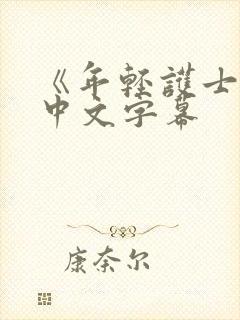 《年轻護士
中文字幕
康奈尔